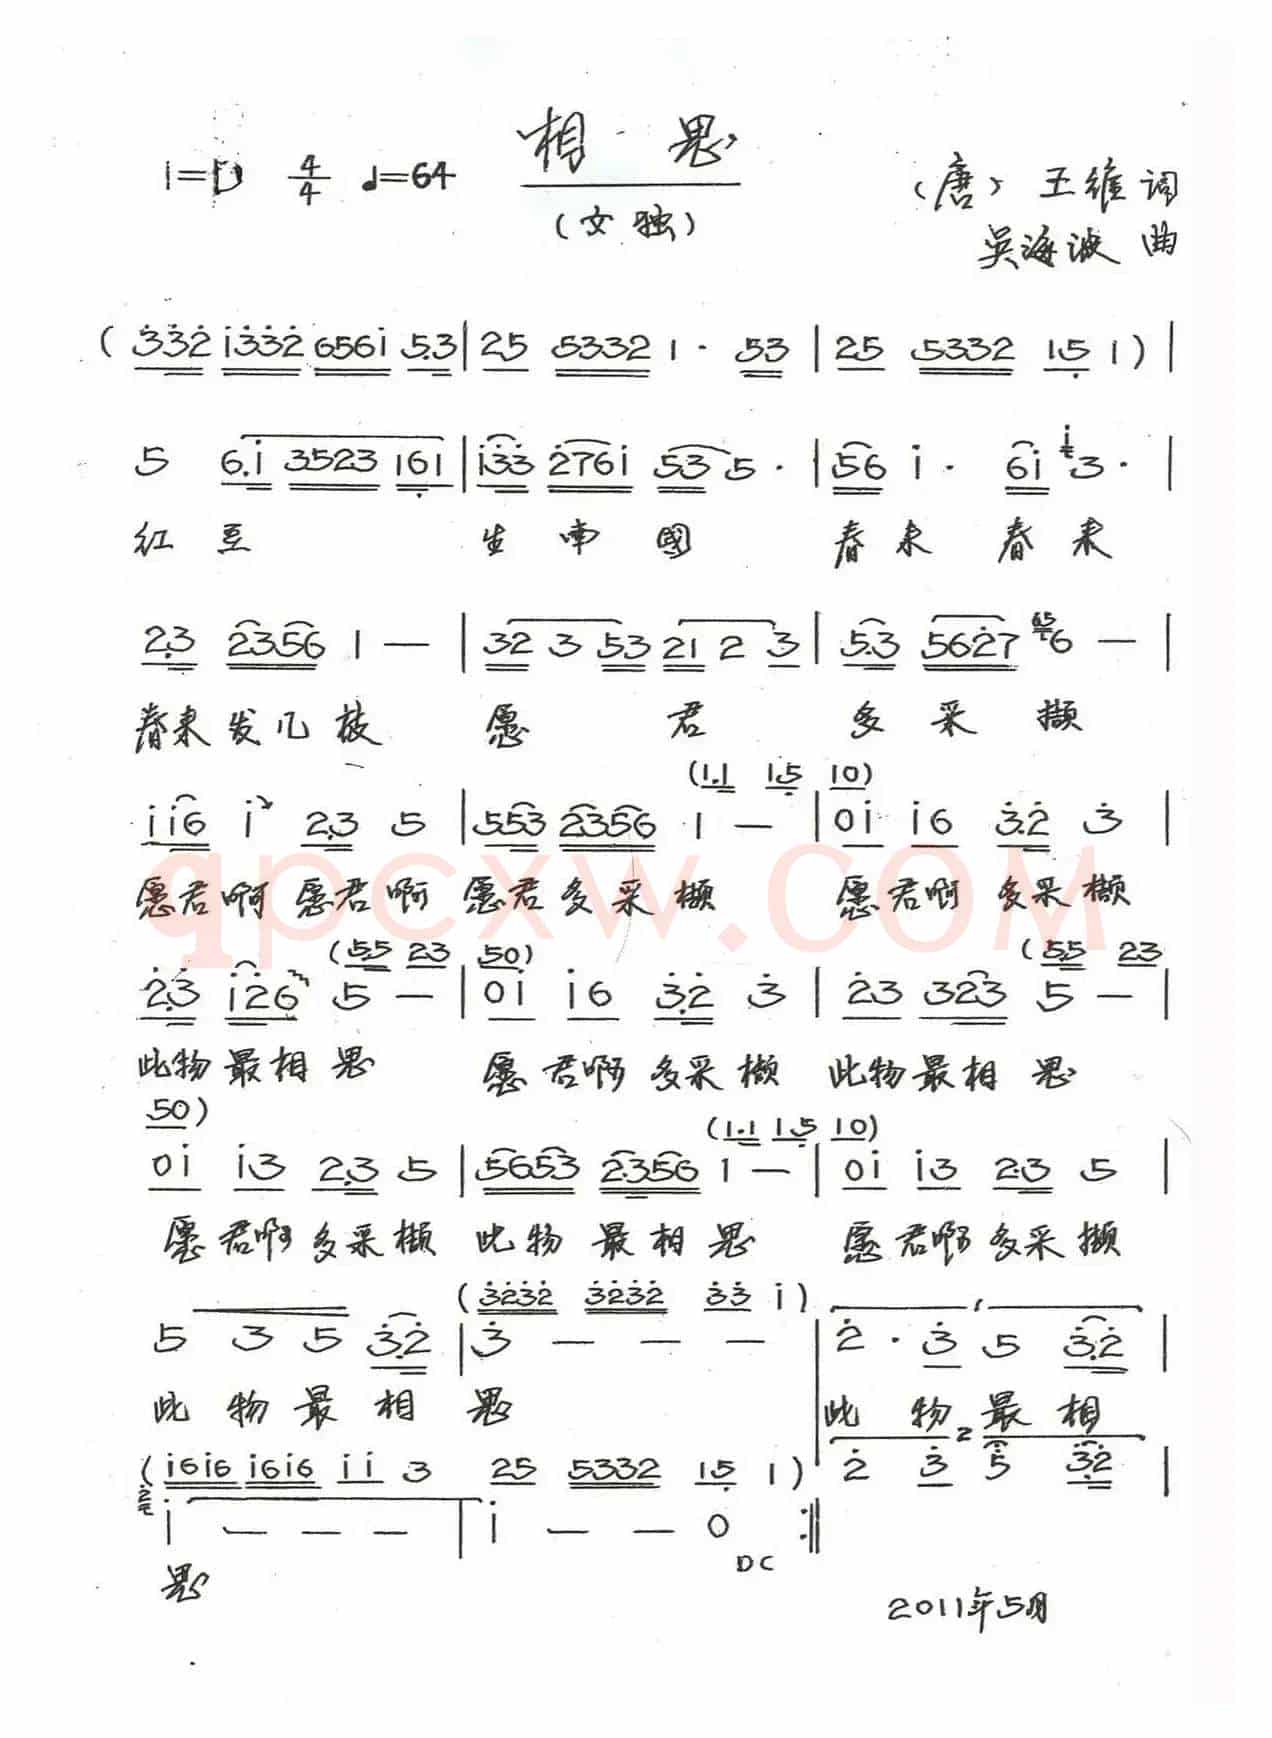 相思
1=D 4/4 ♩=64
(女独)
(唐)王维词
吴海波曲
(3̇3̇2̇ 1̇3̇3̇2̇ 6561̇ 5.3 | 25 5332 1· 53 | 25 5332 15̣ 1) |
5 6.1̇ 3523 16̣1 | 1̇3̇3̇ 2̇761̇ 53 5· | 56 1̇· 61̇ 1̇3· |
红豆 生南國 春来春来
2.3 2356 1 — | 32 3 53 21 2 3 | 5.3 562̇7 656 — |
春来发几枝 愿君 多采撷
(1.1 15̣ 10)
1̇1̇6 1̇ 2.3 5 | 553 2356 1 — | 01̇ 1̇6 3̇.2̇ 3̇ |
愿君啊愿君啊 愿君多采撷 愿君啊多采撷
(5.5 23 50) (5.5 23
2̇.3̇ 1̇2̇6 5 — | 01̇ 1̇6 3̇.2̇ 3̇ | 23 323 5 — |
此物最相思 愿君啊多采撷 此物最相思
50) (1.1 15̣ 10)
01̇ 1̇3 2.3 5 | 5653 2.356 1 — | 01̇ 1̇3 2.3 5 |
愿君啊多采撷 此物最相思 愿君啊多采撷
(3̇2̇3̇2̇ 3̇2̇3̇2̇ 3̇3̇ 1̇)
5 3 5 3̇.2̇ | 3̇ — — — | 2̇· 3̇ 5 3̇.2̇ |
此物最相思 此物最相
(1̇61̇6 1̇61̇6 1̇1̇ 3 25 5332 15̣ 1) 2̇ 3̇ 5̇ 3̇2̇ |
2̇1̇ — — — | 1̇ — — 0 :‖
DC
思
2011年5月
qpcxw.COM